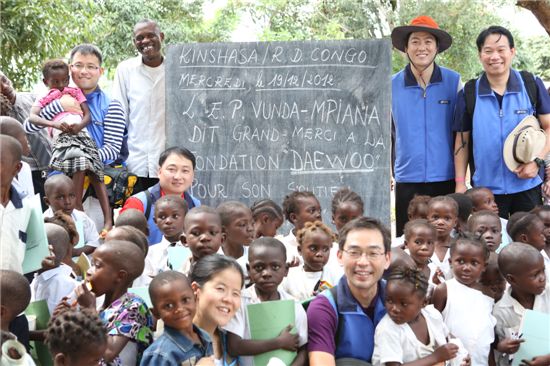 KINSHASA/R.D.CONGO
MERCREDI, le 19/12/2012
L'E.P. VUNDA-MPIANA
DIT GRAND-MERCI A LA
FONDATION "DAEWOO"
POUR SON SOUTIEN